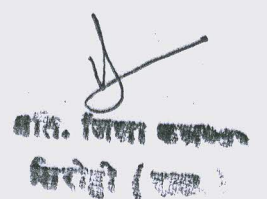 अति. जिला कलक्टर
सिरोही (राज